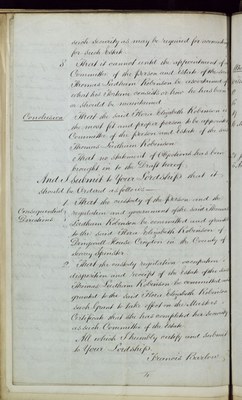 such security as may be required for accounting
for such Estate
3 That it cannot resist the appointment of a
Committee of the person and Estate of the said
Thomas Ludlam Robinson
what has
should be
Conclusion That the said Flora Elizabeth Robinson is
the most fit and proper person to be appointed
Committee of the person and Estate of the said
Thomas Ludlam Robinson
That no statement of Objections has been
brought in to the Draft hereof
And I submit to Your Lordships that it
should be Ordered as follows
Consequential Directions
1. That the custody of the person and the
regulation and government of the said Thomas
Ludlam Robinson be committed and granted
to the said Flora Elizabeth Robinson of
Croydon in the County of
Surrey Spinster
2. That the custody regulation occupation
disposition and receipt of the Estate of the said
Thomas Ludlam Robinson be committed and
granted to the said Flora Elizabeth Robinson
such Grant to take effect on the Master's
Certificate that she has completed her security
as such Committee of the Estate
All which I humbly certify and submit
to Your Lordships
Francis Barlow